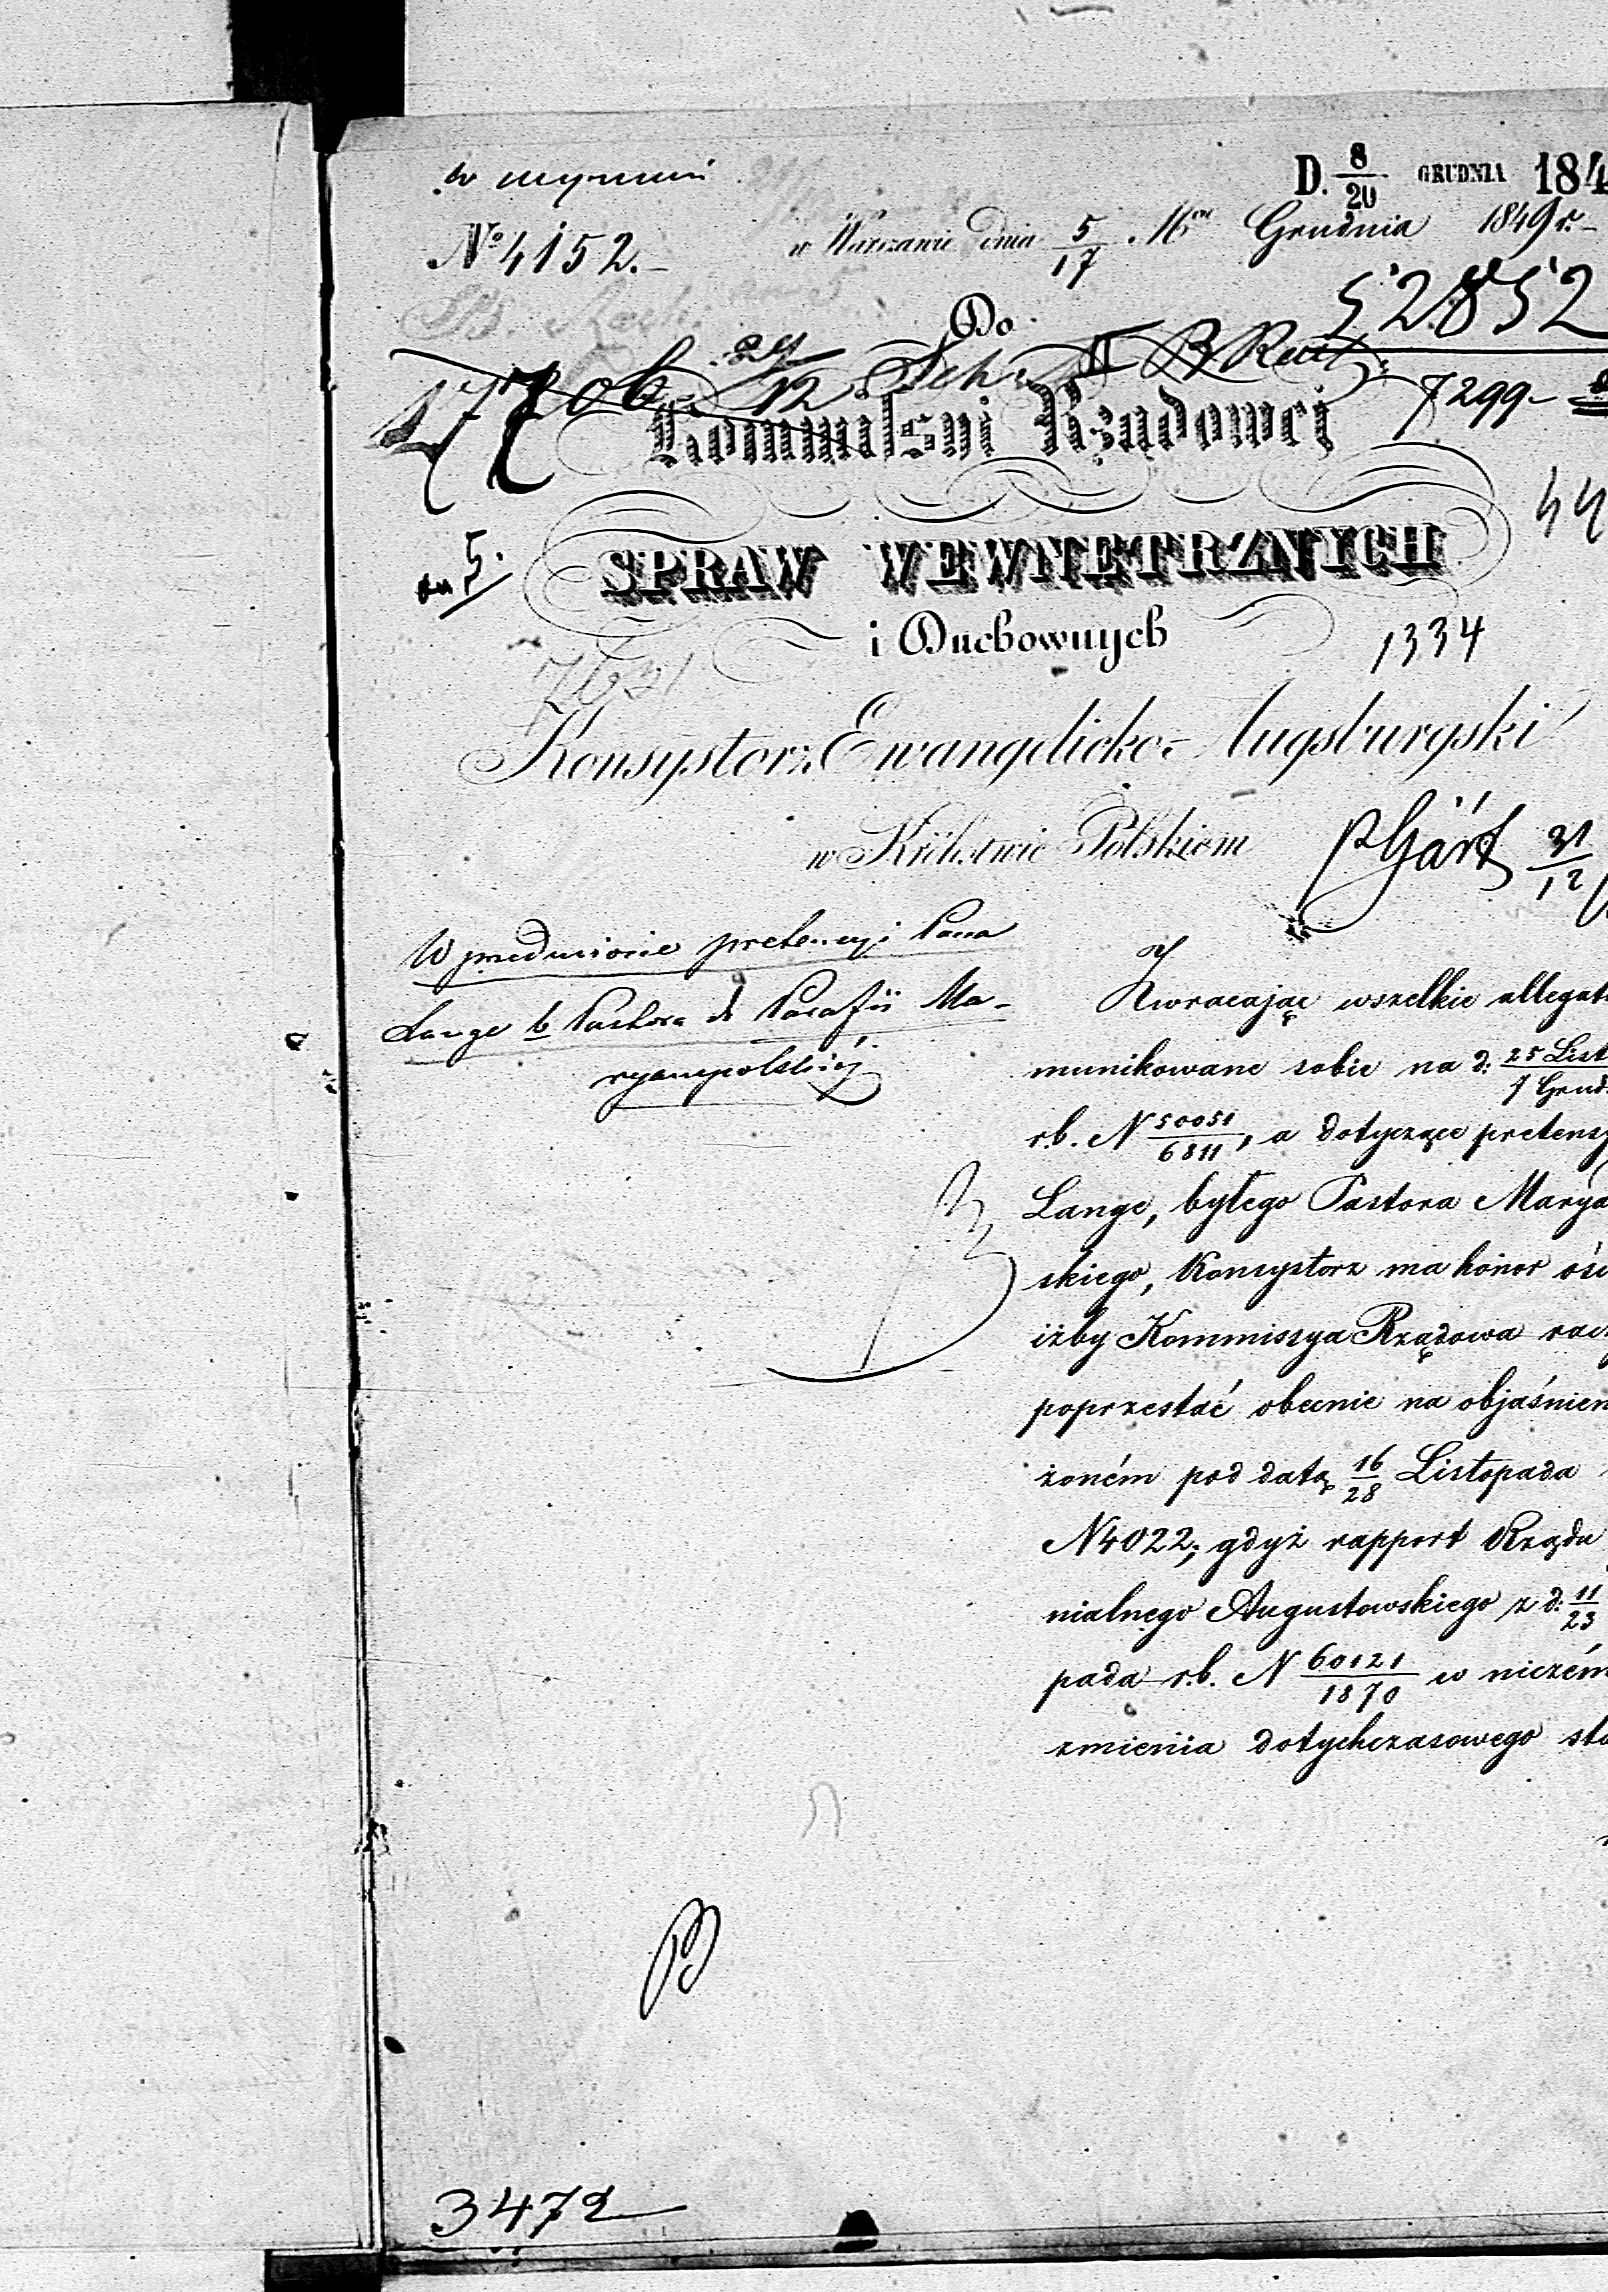 D. 8/20 GRUDNIA 184
№ 4152.
w Warszawie dnia 5/17 Mca Grudnia 1849 r.
52852
Do
24/12
II
Kommissyi Rządowej
7299
177
SPRAW WEWNĘTRZNYCH
5.
i Duchownych
1334
Konsystorz Ewangelicko-Augsburgski
w Królestwie Polskiem
31/12
W przedmiocie pretensyi Pana
Lange b Pastora do Parafii Ma-
ryampolskiéj
Zwracając wszelkie allegat
munikowane sobie na d: 25 List/7 Grud
r.b. N 50051/6811, a dotyczące pretensy
Lange, byłego Pastora Marya
skiego, Konsystorz ma honor oś
iżby Kommissya Rządowa racz
poprzestać obecnie na objaśnien
żoném pod datą 16/28 Listopada
N 4022; gdyż rapport Rządu
nialnego Augustowskiego z d: 11/23
pada r.b. N 60121/1870 w niczém
zmienia dotychczasowego sta
3472